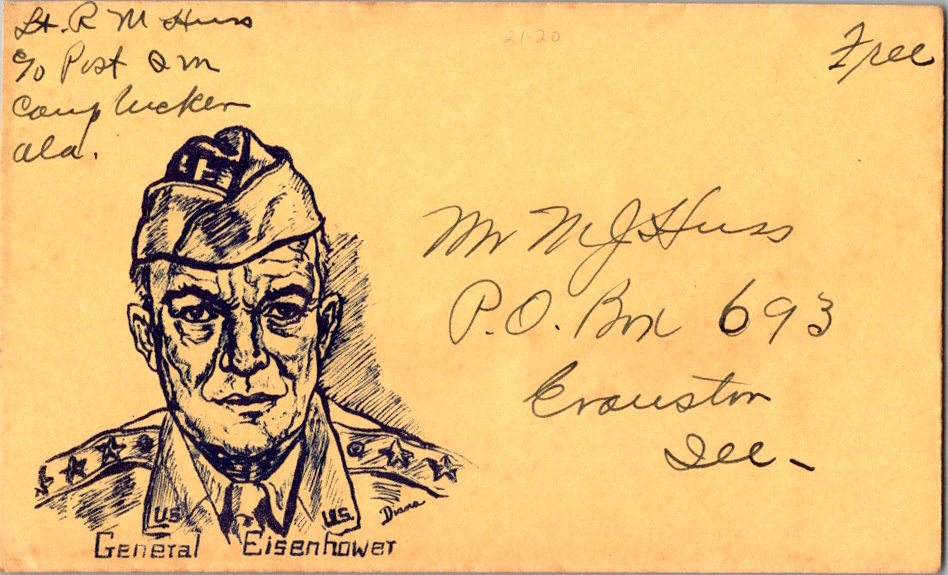 Lt. R M Huss
c/o Post Q M
Camp Rucker
Ala.
21-20
Free
Mr M J Huss
P.O. Box 693
Evanston
Ill.
US
U.S.
Diana
General Eisenhower